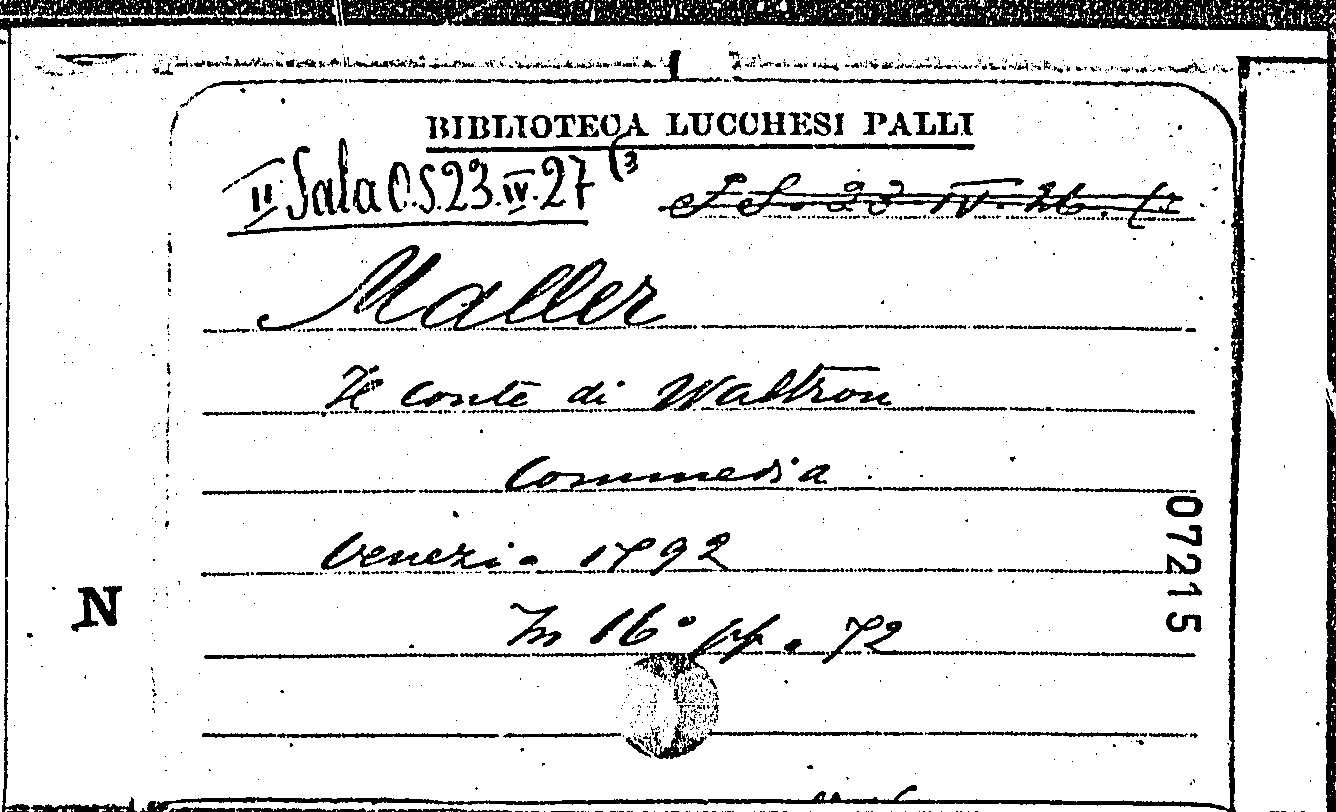 BIBLIOTECA LUCCHESI PALLI
II Sala O.S.23.IV.27 (3
Maller
Il conte di Waltron
Commedia
Venezia 1792
In 16° pp. 72
07215
N